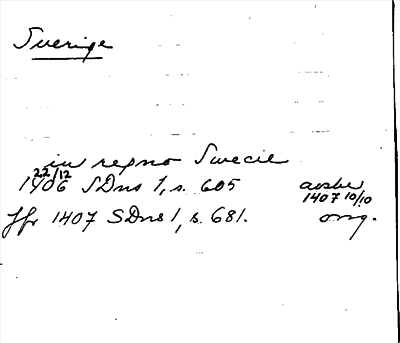 Sverige
in regno Swecie
22/12
1406 SDns 1, s. 605 avskr
1407 10/10
Jfr 1407 SDns 1, s. 681. orig.